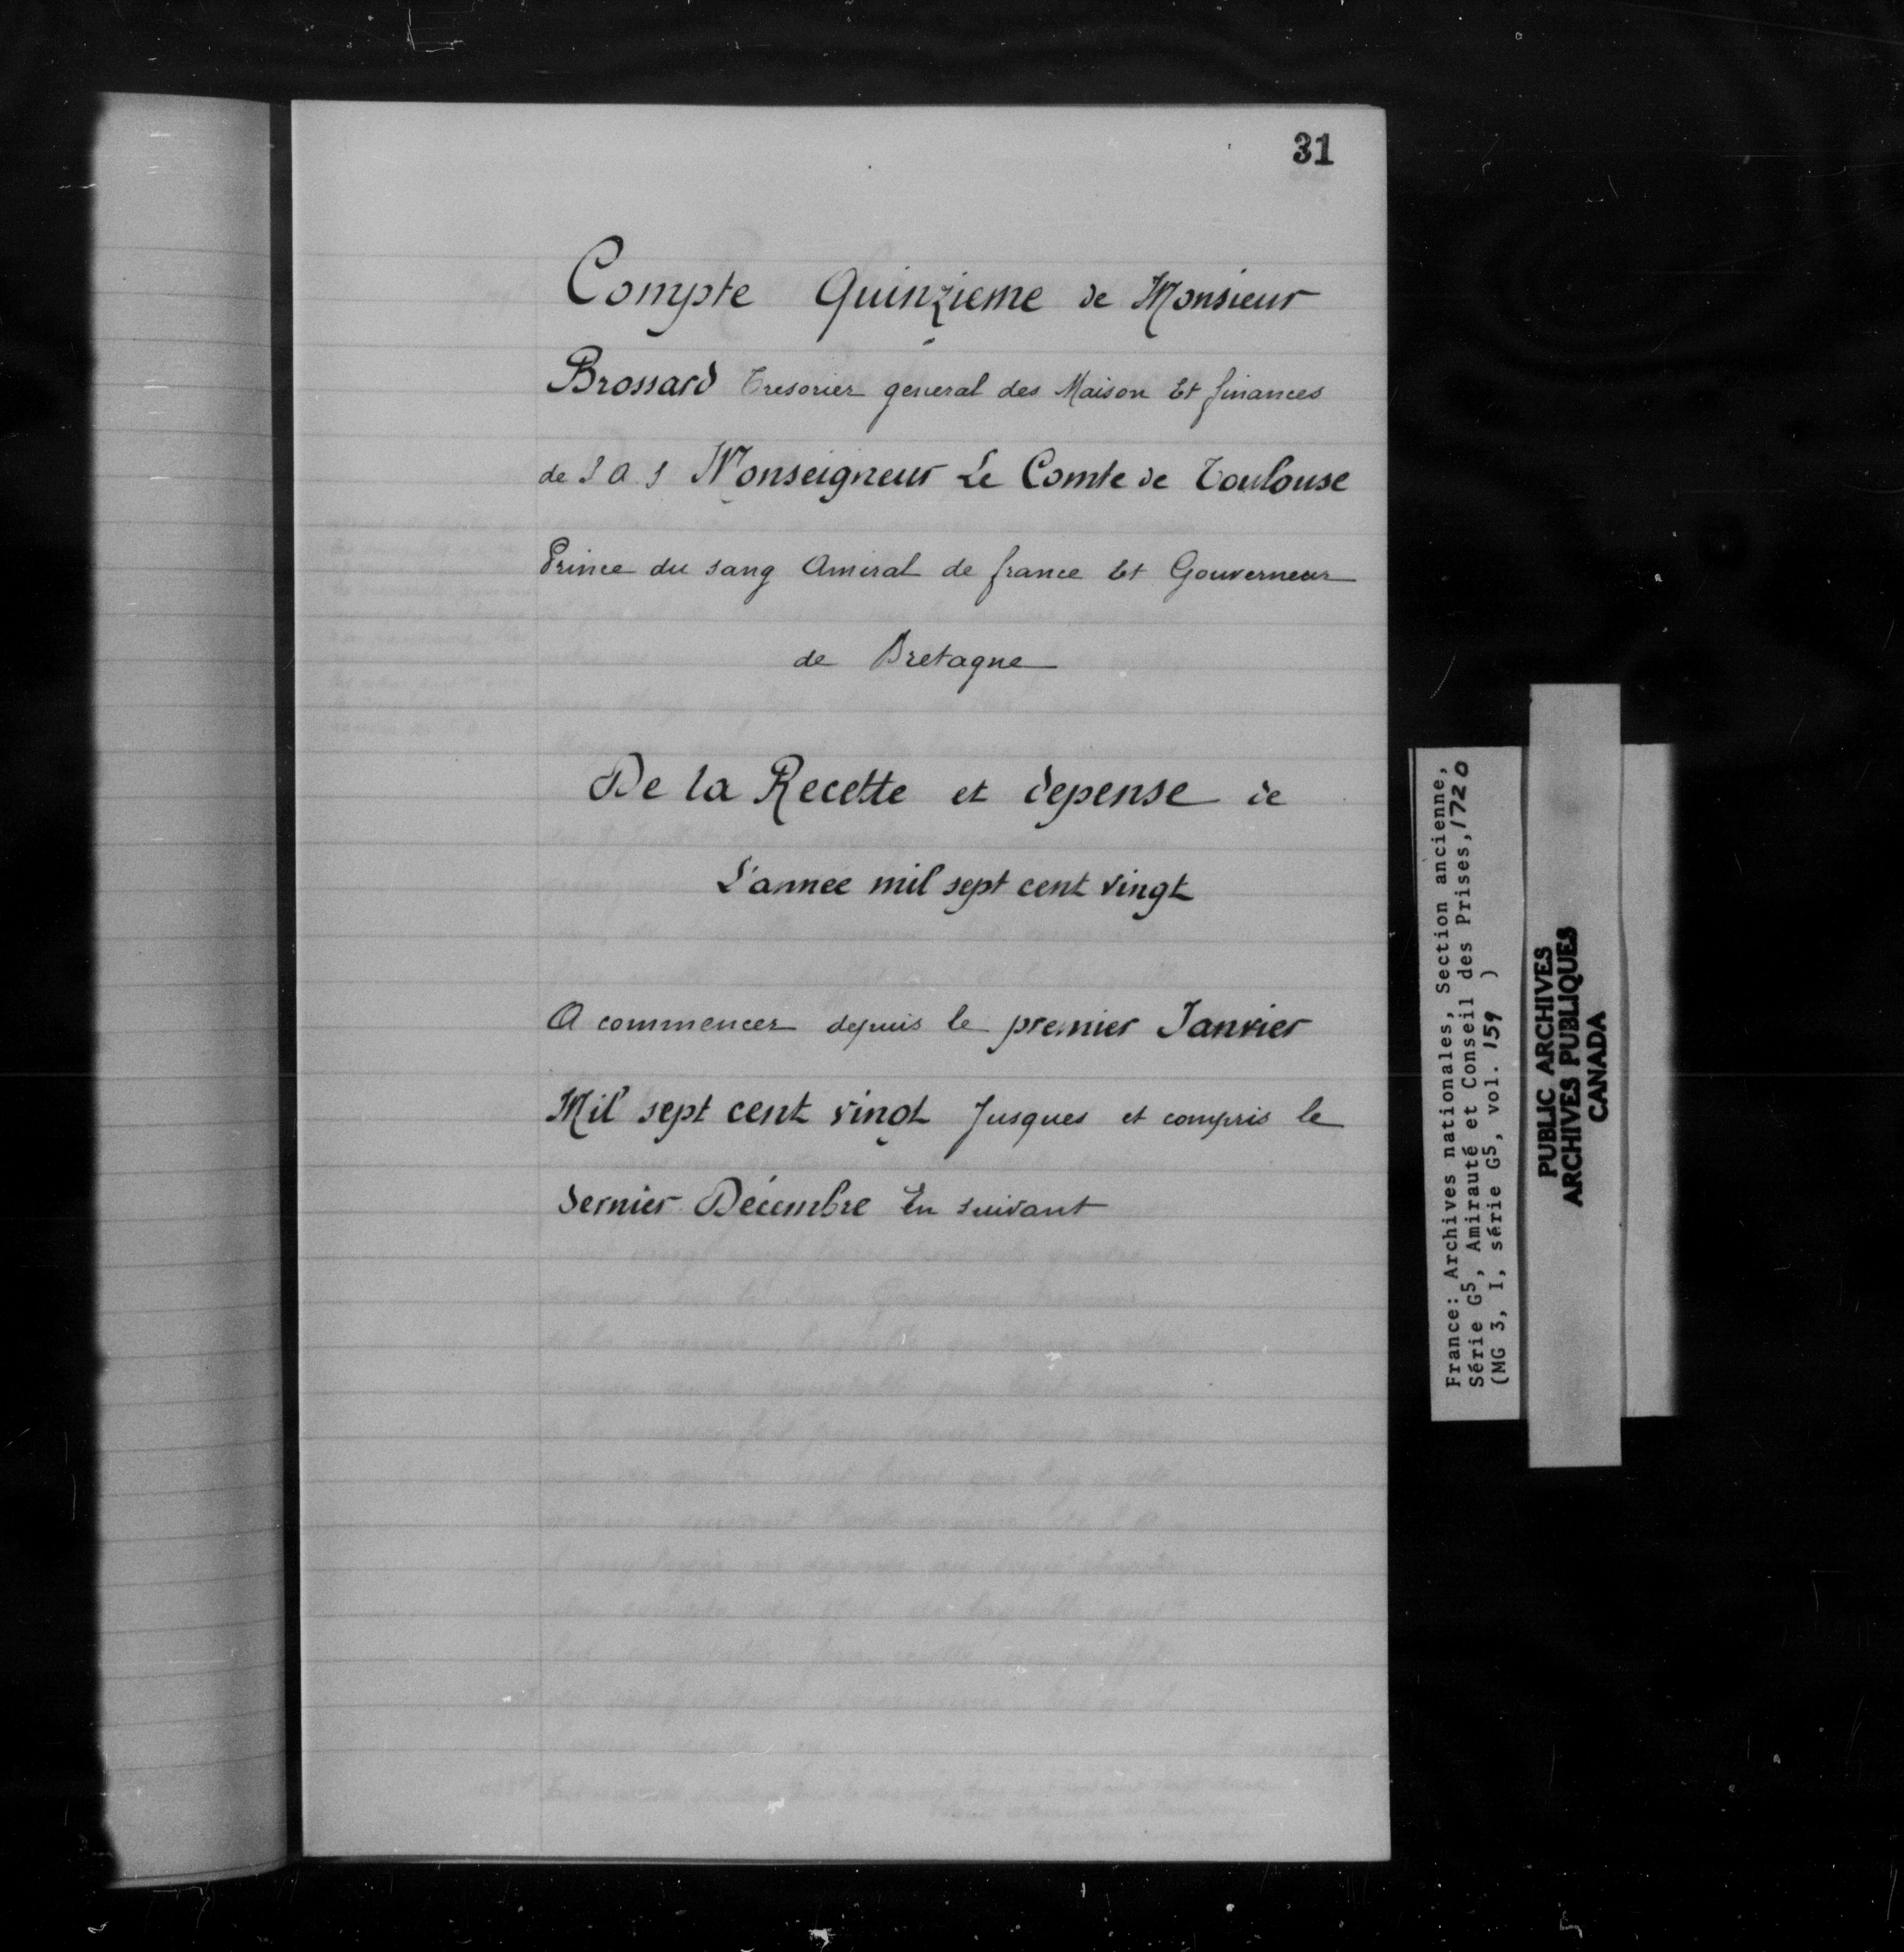 31
Compte Quinzieme de Monsieur
Brossard Tresorier general des Maison Et finances
de S A S Monseigneur Le Comte de Toulouse
Prince du sang Amiral de france Et Gouverneur
de Bretagne
De la Recette et depense de
L'année mil sept cent vingt
A commencer depuis le premier Janvier
Mil sept cent vingt Jusques et compris le
dernier Décembre En suivant
France: Archives nationales, Section ancienne,
Série G5, Amirauté et Conseil des Prises, 1720
(MG 3, I, série G5, vol. 159 )
PUBLIC ARCHIVES
ARCHIVES PUBLIQUES
CANADA